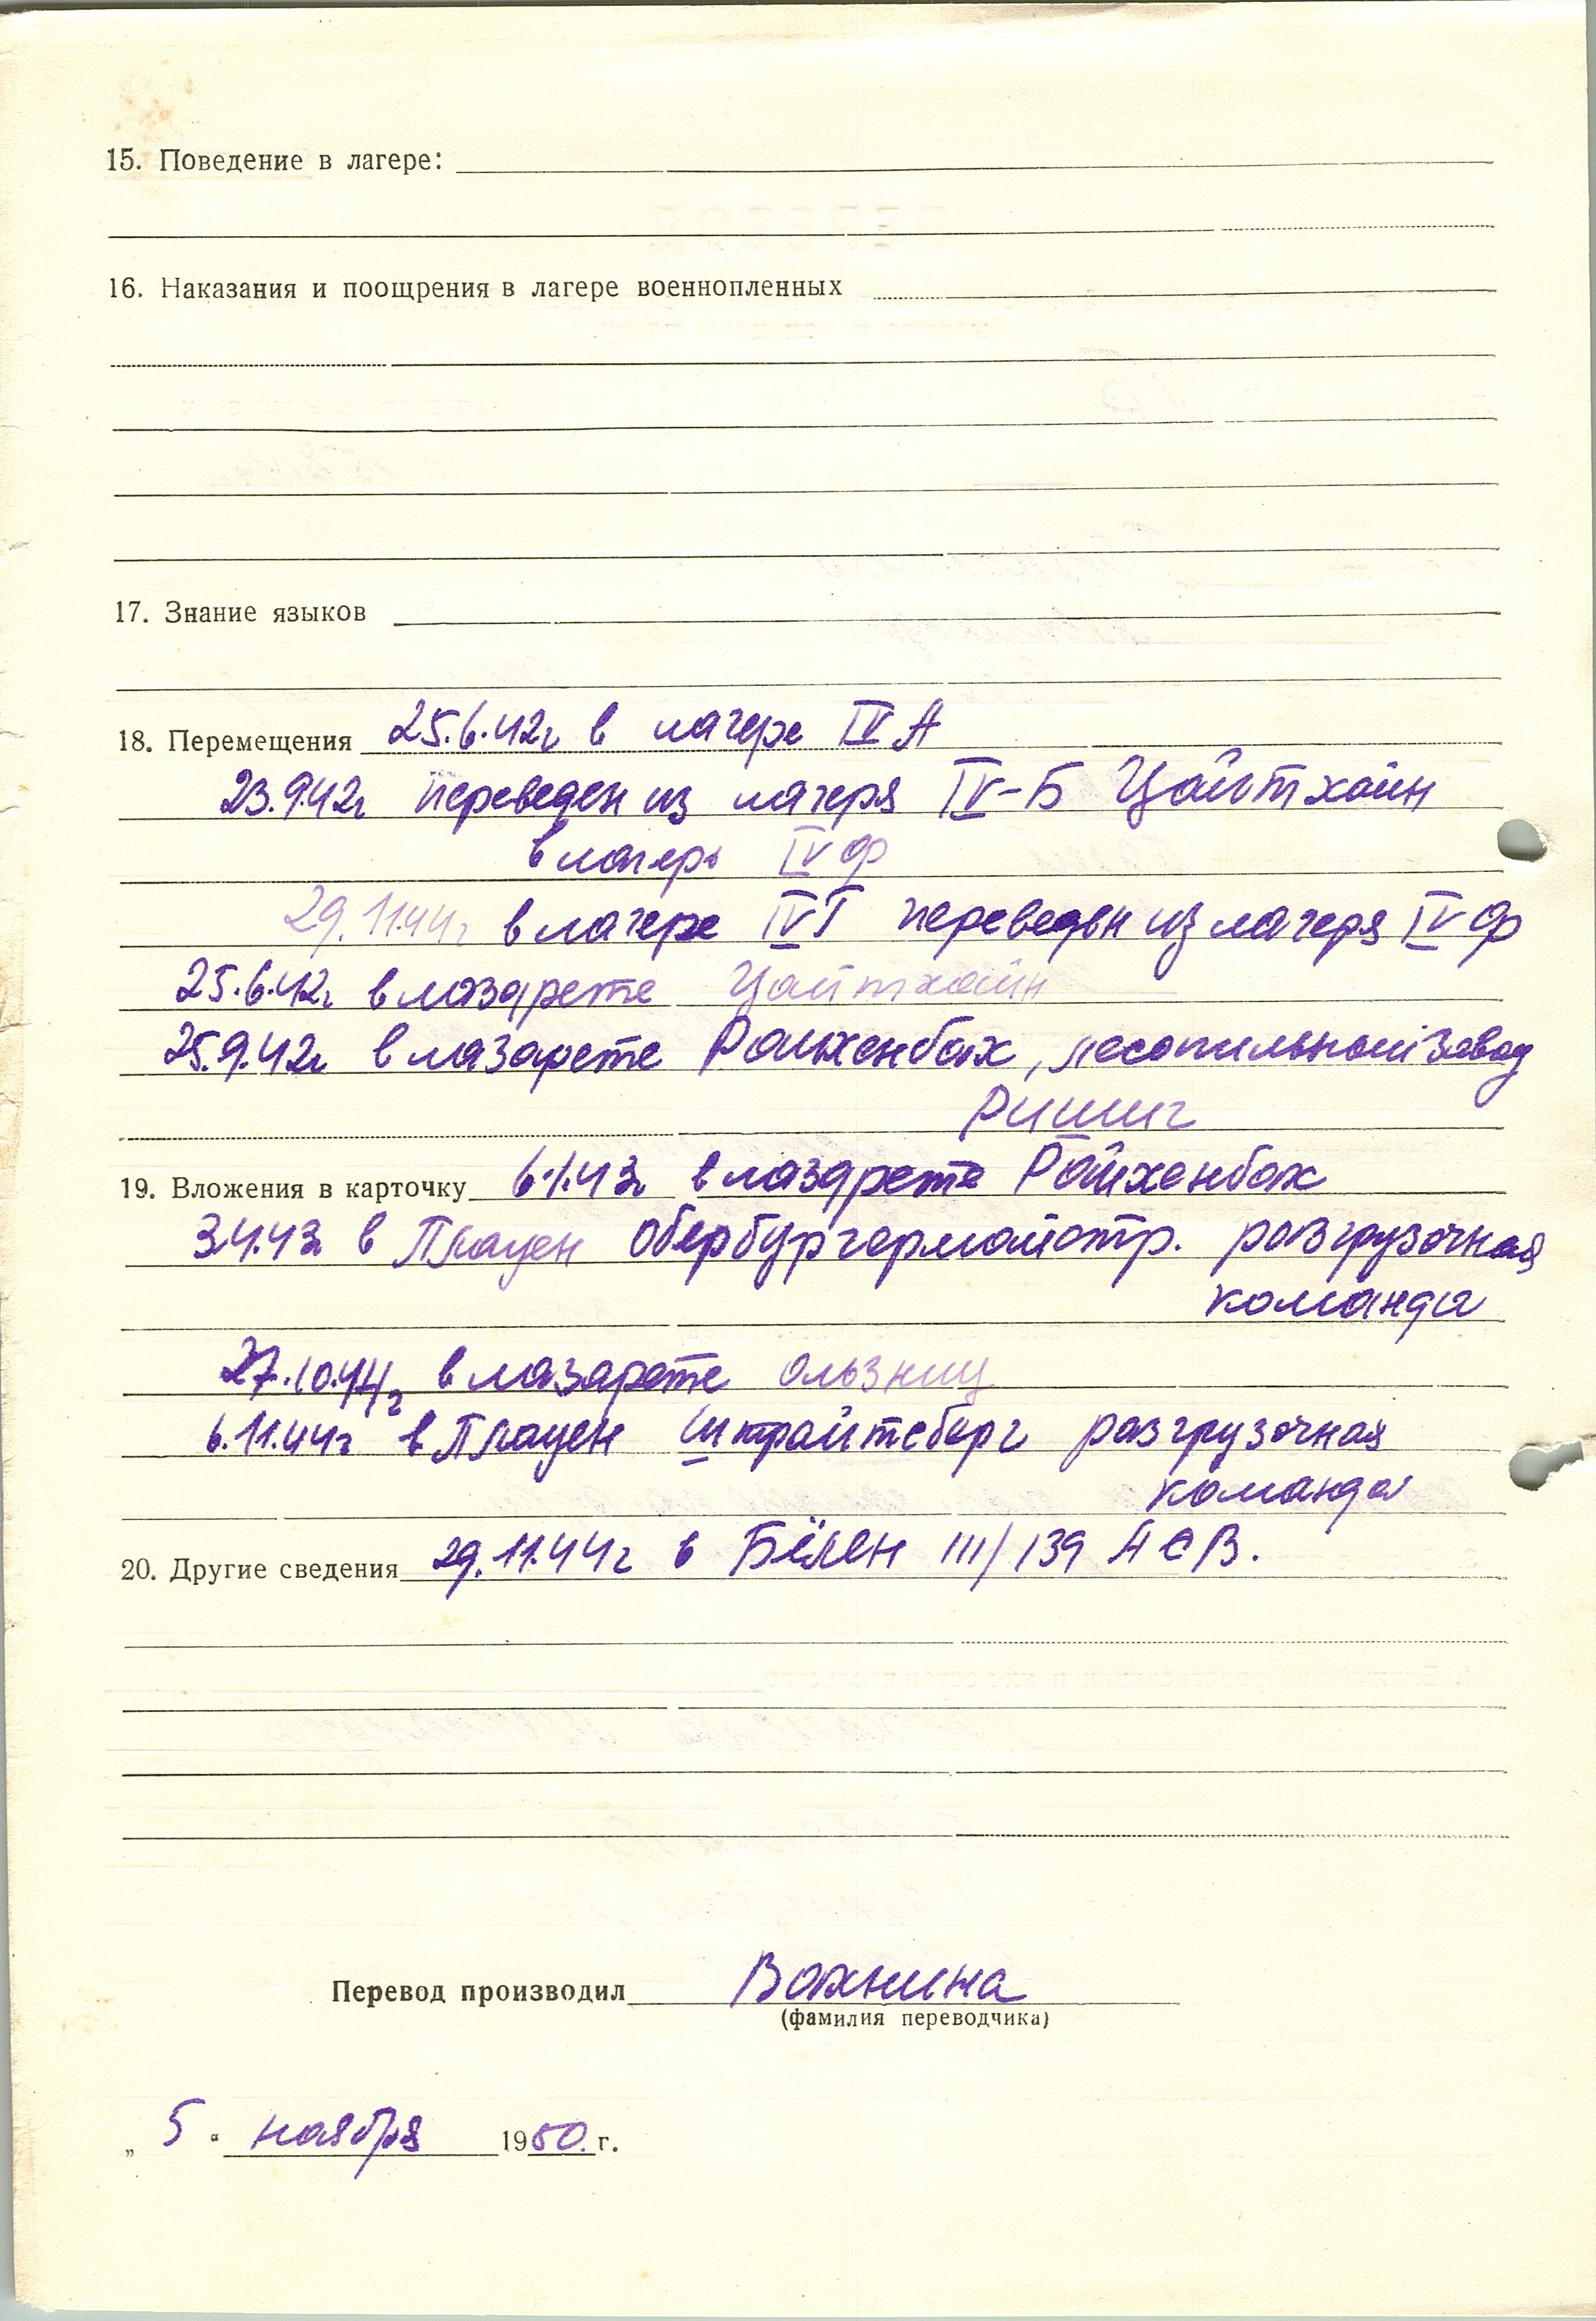 15. Поведение в лагере:
16. Наказания и поощрения в лагере военнопленных
17. Знание языков
18. Перемещения 25.6.42г в лагере IV А
23.9.42г переведен из лагеря IV-Б Цайтхайн
в лагерь IV Ф
29.11.44г в лагере IV Г переведен из лагеря IV Ф
25.6.42г. в лазарете Цайтхайн
25.9.42г в лазарете Райхенбах, лесопильный завод
Ришиг
19. Вложения в карточку 6.1.43г в лазарете Райхенбах
3.4.43г в Плауен Обербургермайстр. разгрузочная
команда
27.10.44г в лазарете Ользниц
6.11.44г в Плауен Штрайтсберг разгрузочная
команда
20. Другие сведения 29.11.44г в Бёлен III/139 А С В.
Перевод производил Вахнина
(фамилия переводчика)
„ 5 " ноября 1950. г.